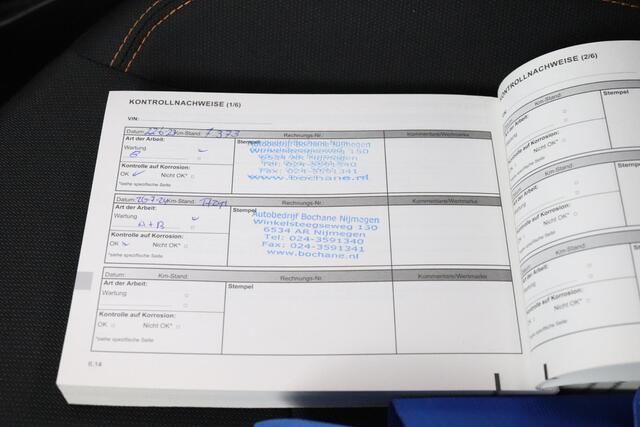 KONTROLLNACHWEISE (1/6)
VIN:
Datum: Km-Stand: 7 373 Rechnungs-Nr.: Kommentare/Wermarke
Art der Arbeit: Stempel
Wartung
Kontrolle auf Korrosion:
OK Nicht OK*
*siehe spezifische Seite
Autobedrijf Bochane Nijmegen
Winkelsteegseweg 150
6534 AR Nijmegen
Tel: 024-3591340
Fax: 024-3591341
www.bochane.nl
Datum: Km-Stand: Rechnungs-Nr.: Kommentare/Wermarke
Art der Arbeit: Stempel
Wartung
A + B
Kontrolle auf Korrosion:
OK Nicht OK*
*siehe spezifische Seite
Autobedrijf Bochane Nijmegen
Winkelsteegseweg 150
6534 AR Nijmegen
Tel: 024-3591340
Fax: 024-3591341
www.bochane.nl
Datum: Km-Stand: Rechnungs-Nr.: Kommentare/Wermarke
Art der Arbeit: Stempel
Wartung
Kontrolle auf Korrosion:
OK Nicht OK*
*siehe spezifische Seite
6.14
KONTROLLNACHWEISE (2/6)
Km-Stand:
Art der Arbeit:
Wartung
Kontrolle auf Korrosion:
Nicht OK*
*siehe spezifische Seite
Km-Stand:
Art der Arbeit:
Wartung
Kontrolle auf Korrosion:
Nicht OK*
Km-Stand:
Wartung
Kontrolle auf Korrosion:
Nicht OK*
spezifische Seite